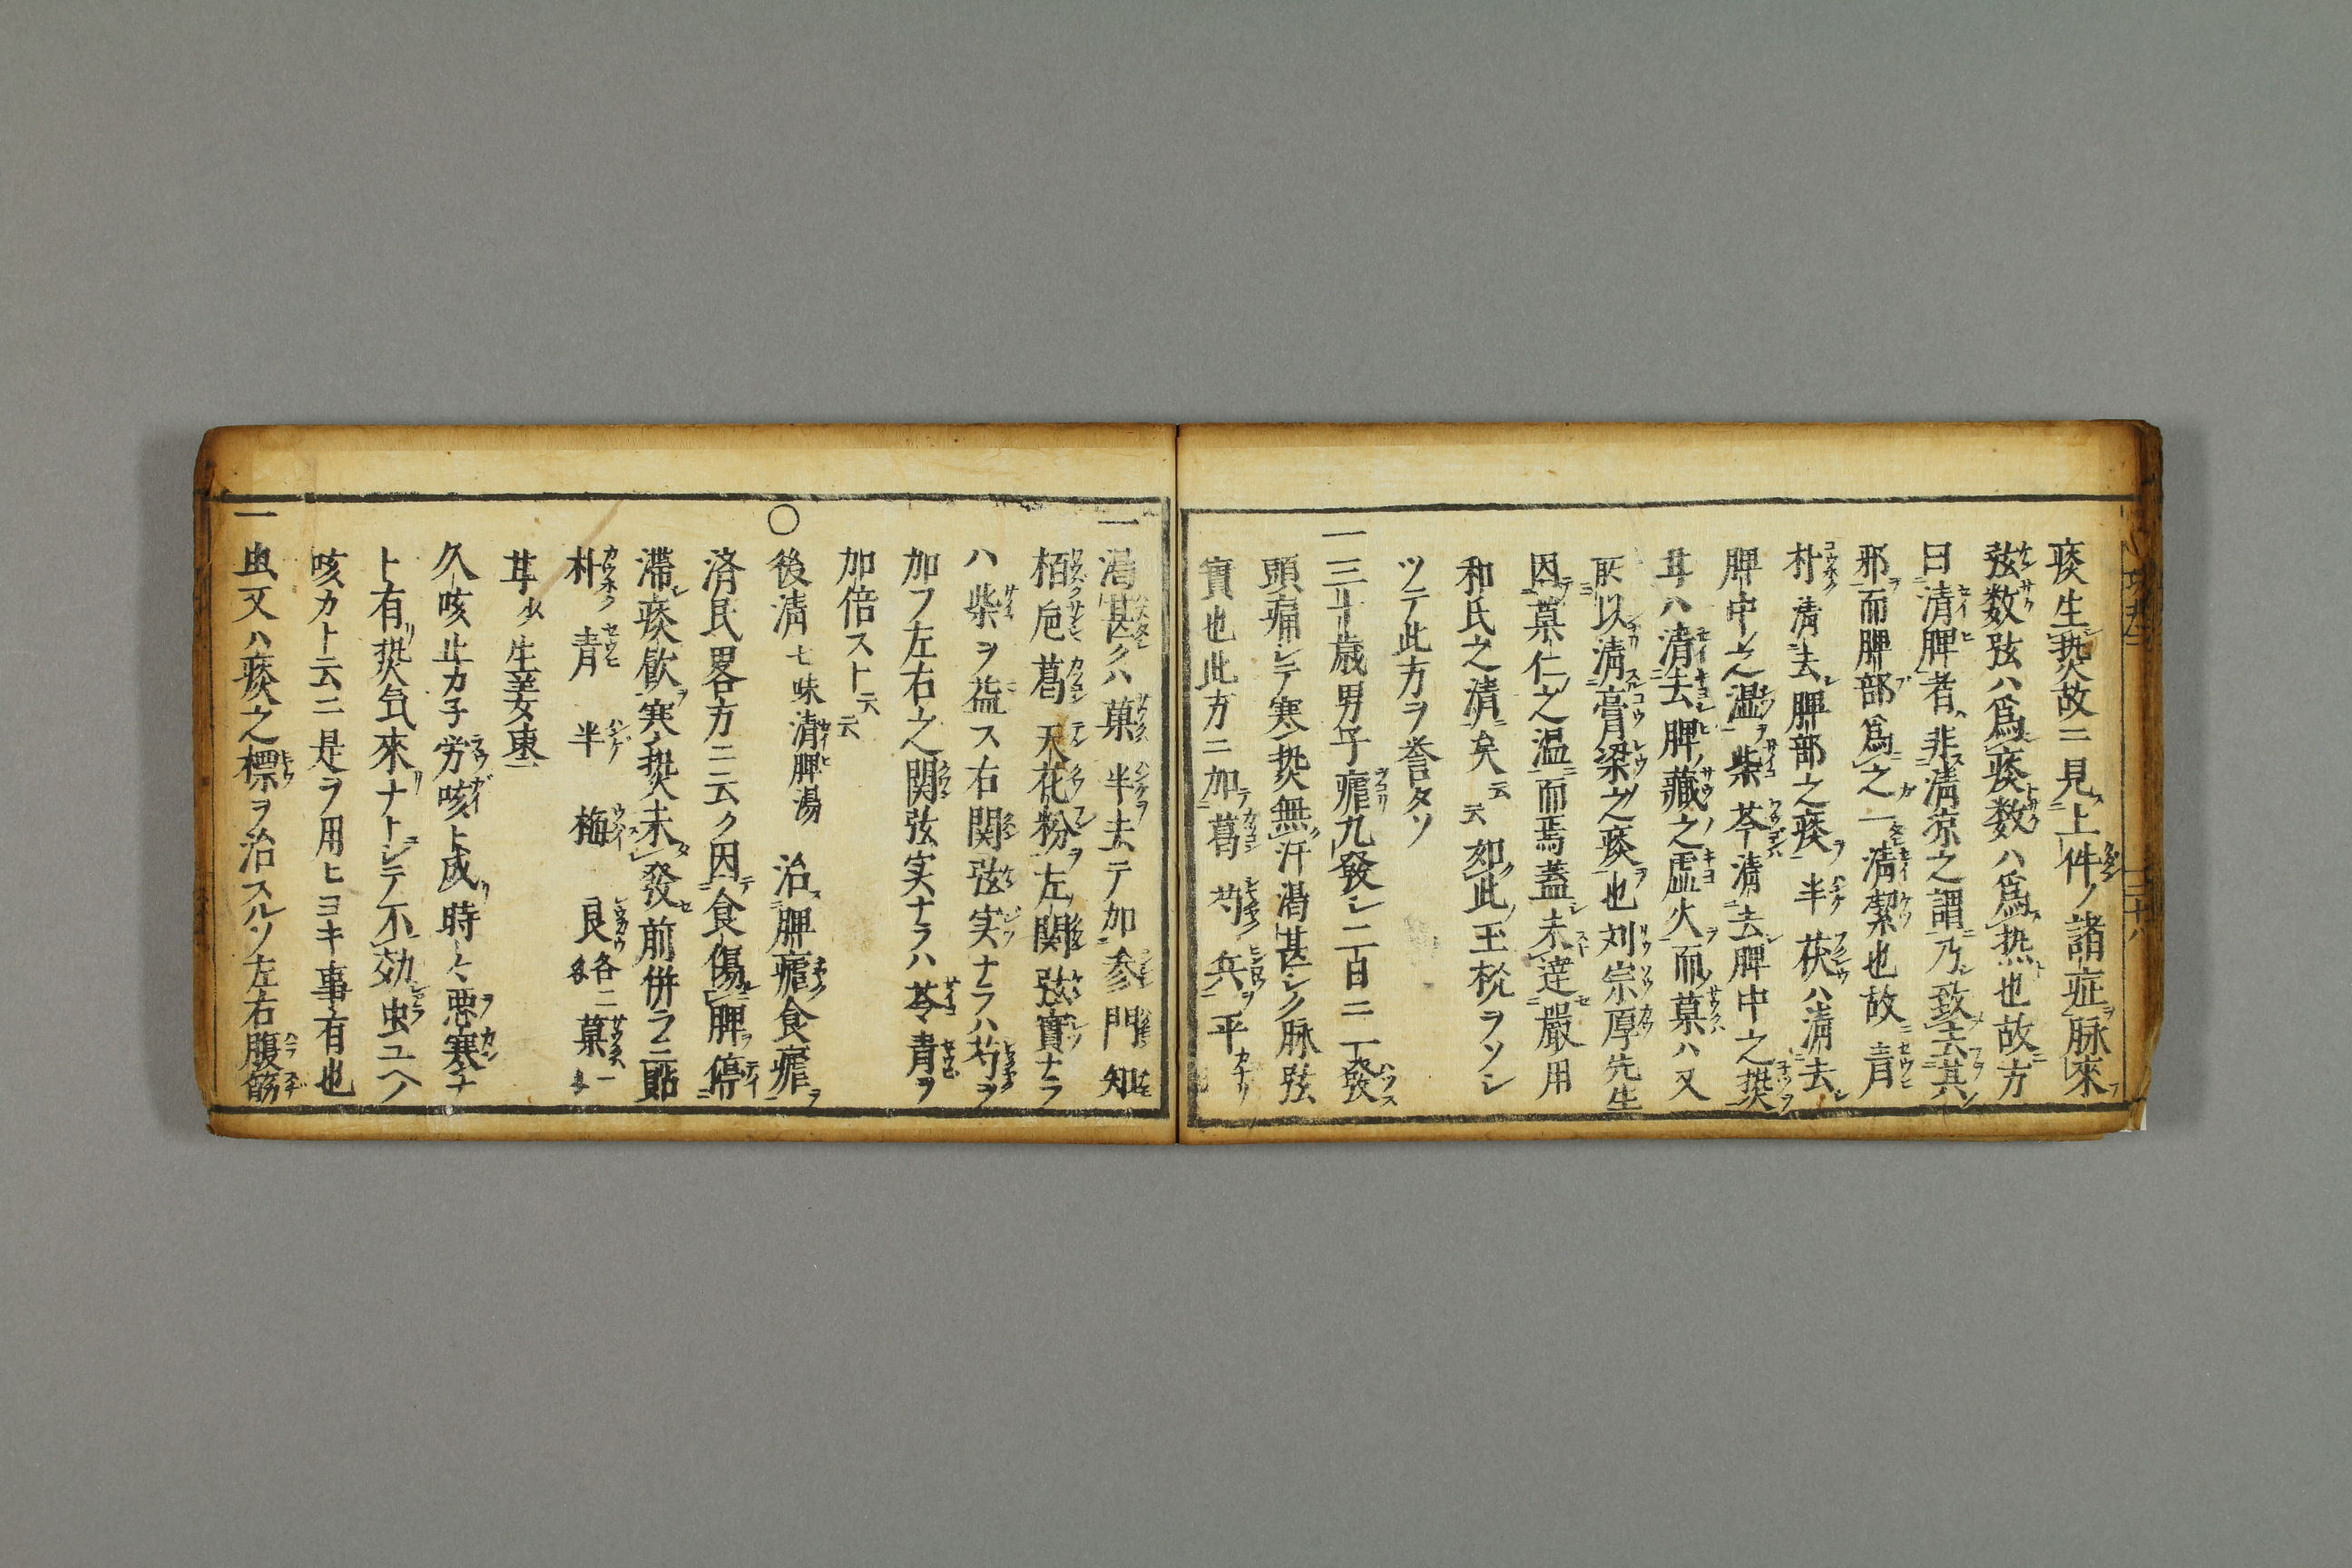 痰生熱故ニ見上件ノ諸症脉來
弦数弦ハ爲痰数ハ爲热也故方
曰清脾者非清凉之謂乃致去其
邪而脾部爲之一清潔也故青
朴清去脾部之痰半茯ハ清去
脾中之湿柴芩清去脾中之熱
甘ハ清去脾藏之虚火而菓ハ又
所以清膏梁之痰也刘宗厚先生
因菓仁之温而焉蓋未達嚴用
和氏之清矣云云如此玉枕ヲソシ
ツテ此方ヲ誉タソ
一三十歳男子瘧九發シ二百ニ一發
頭痛シテ寒熱無汗渇甚シク脉弦
實也此方ニ加葛芍兵平
一渇甚クハ菓半去テ加参門知
栢巵葛天花粉左関弦實ナラ
ハ柴ヲ益ス右関弦実ナラハ芍ヲ
加フ左右之関弦実ナラハ芩青ヲ
加倍スト云云
〇後清七味清脾湯 治脾瘧食瘧
済民畧方ニ云ク因食傷脾停
滞痰飲寒熱未發前併ラニ貼
朴 青 半 梅 良各二 菓一
甘少 生姜棗
久咳止カ子労咳ト成時々悪寒子
ト有熱気來ナトシテ不効虫ユヘノ
咳カト云ニ是ヲ用ヒヨキ事有也
一虫又ハ痰之標ヲ治スルソ左右腹筋